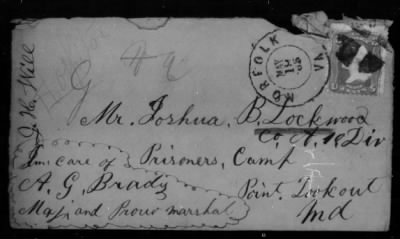 NORFOLK VA
MAY 19
Mr. Joshua, B. Lockwood
Co. A. 18 Div
In care of Prisoners, Camp
A. G. Brady Point Lookout
Maj. and Provo marshal Md